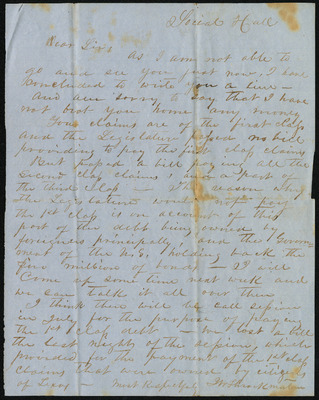 Social Hall
Dear Sir
As I am not able to
go and see you just now, I have
concluded to write you a line —
and am sorry to say that I have
not brot you home any money
Your claims are of the first class
and the Legislature passed no bill
providing to pay the first class claims
But passed a bill paying all the
second class claims & a part of
the third class — The reason why
the Legislature would not pay
the 1st class is on account of this
part of the debt being owned by
foreigners principally, and the Govern-
ment of the U.S. holding back the
five million of bonds — I will
come up some time next week and
we can talk it all over then
I think there will be call session
in July for the purpose of paying
the 1st class debt — We lost a bill
the last night of the session, which
provided for the payment of the 1st class
claims that were owned by citizens
of Texas — Most Respectfully